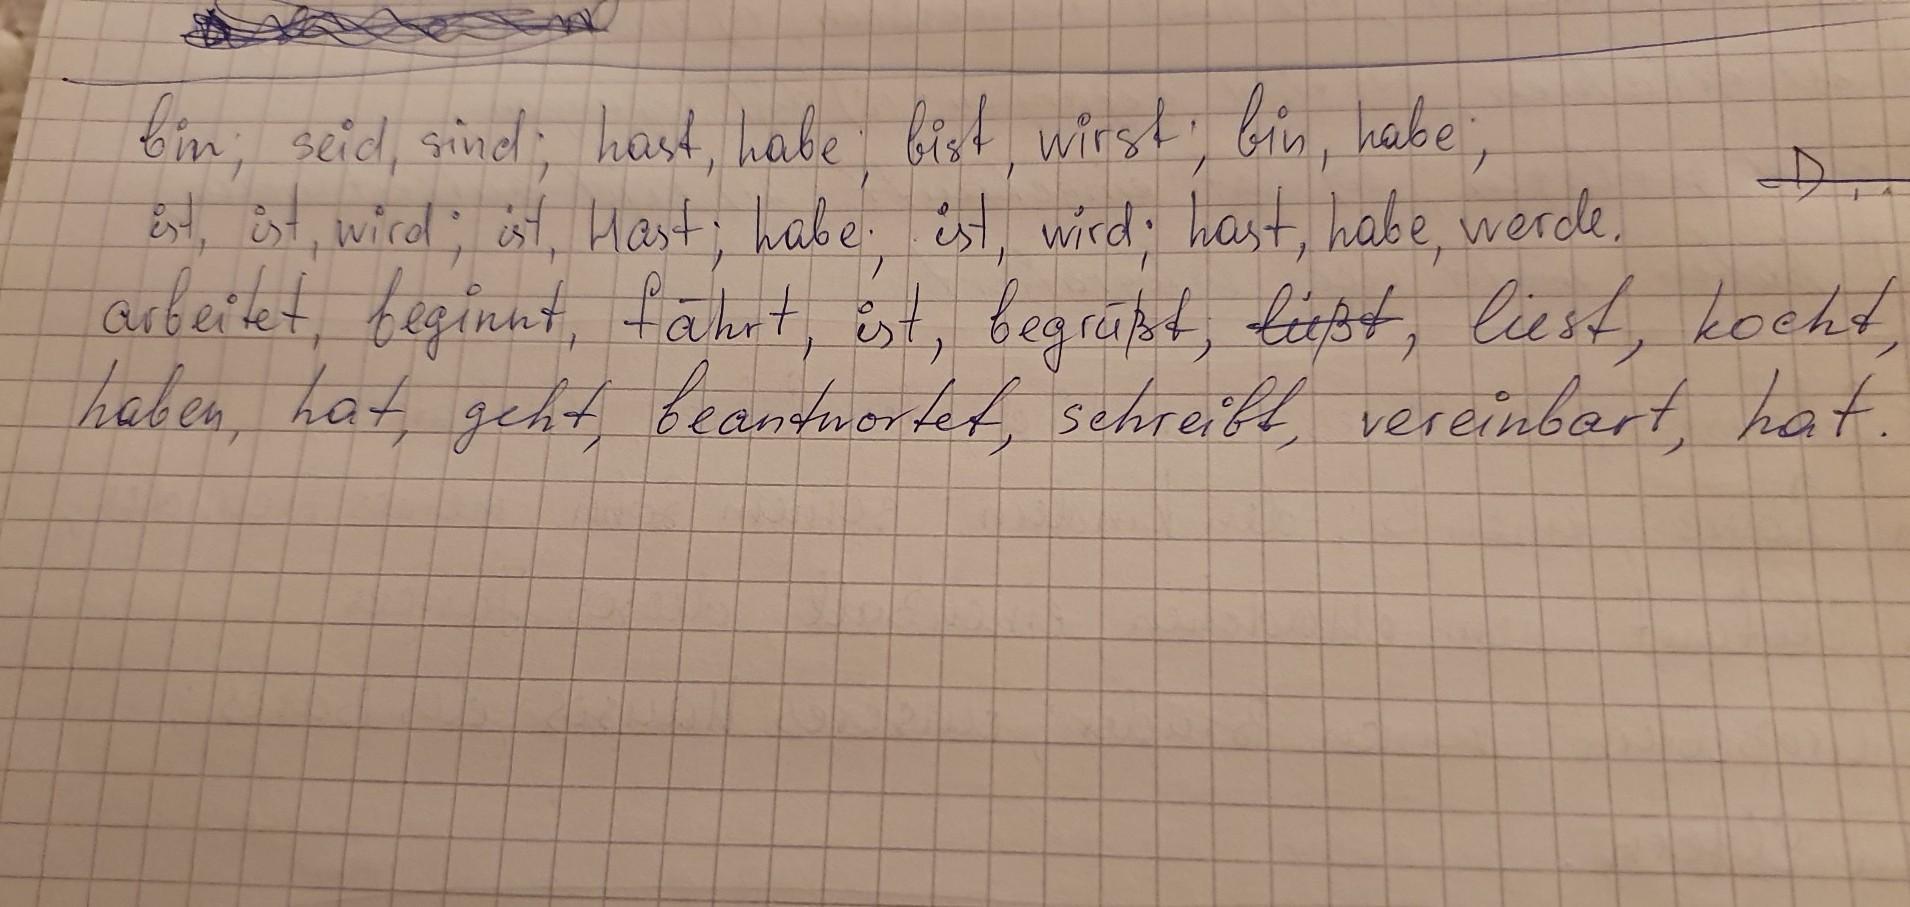 bin; seid, sind; hast, habe; bist, wirst; bin, habe;
ist, ist, wird; ist, Hast; habe; ist, wird; hast, habe, werde.
arbeitet, beginnt, fährt, ist, begrüßt, lüßt, liest, kocht,
haben, hat, geht, beantwortet, schreibt, vereinbart, hat.